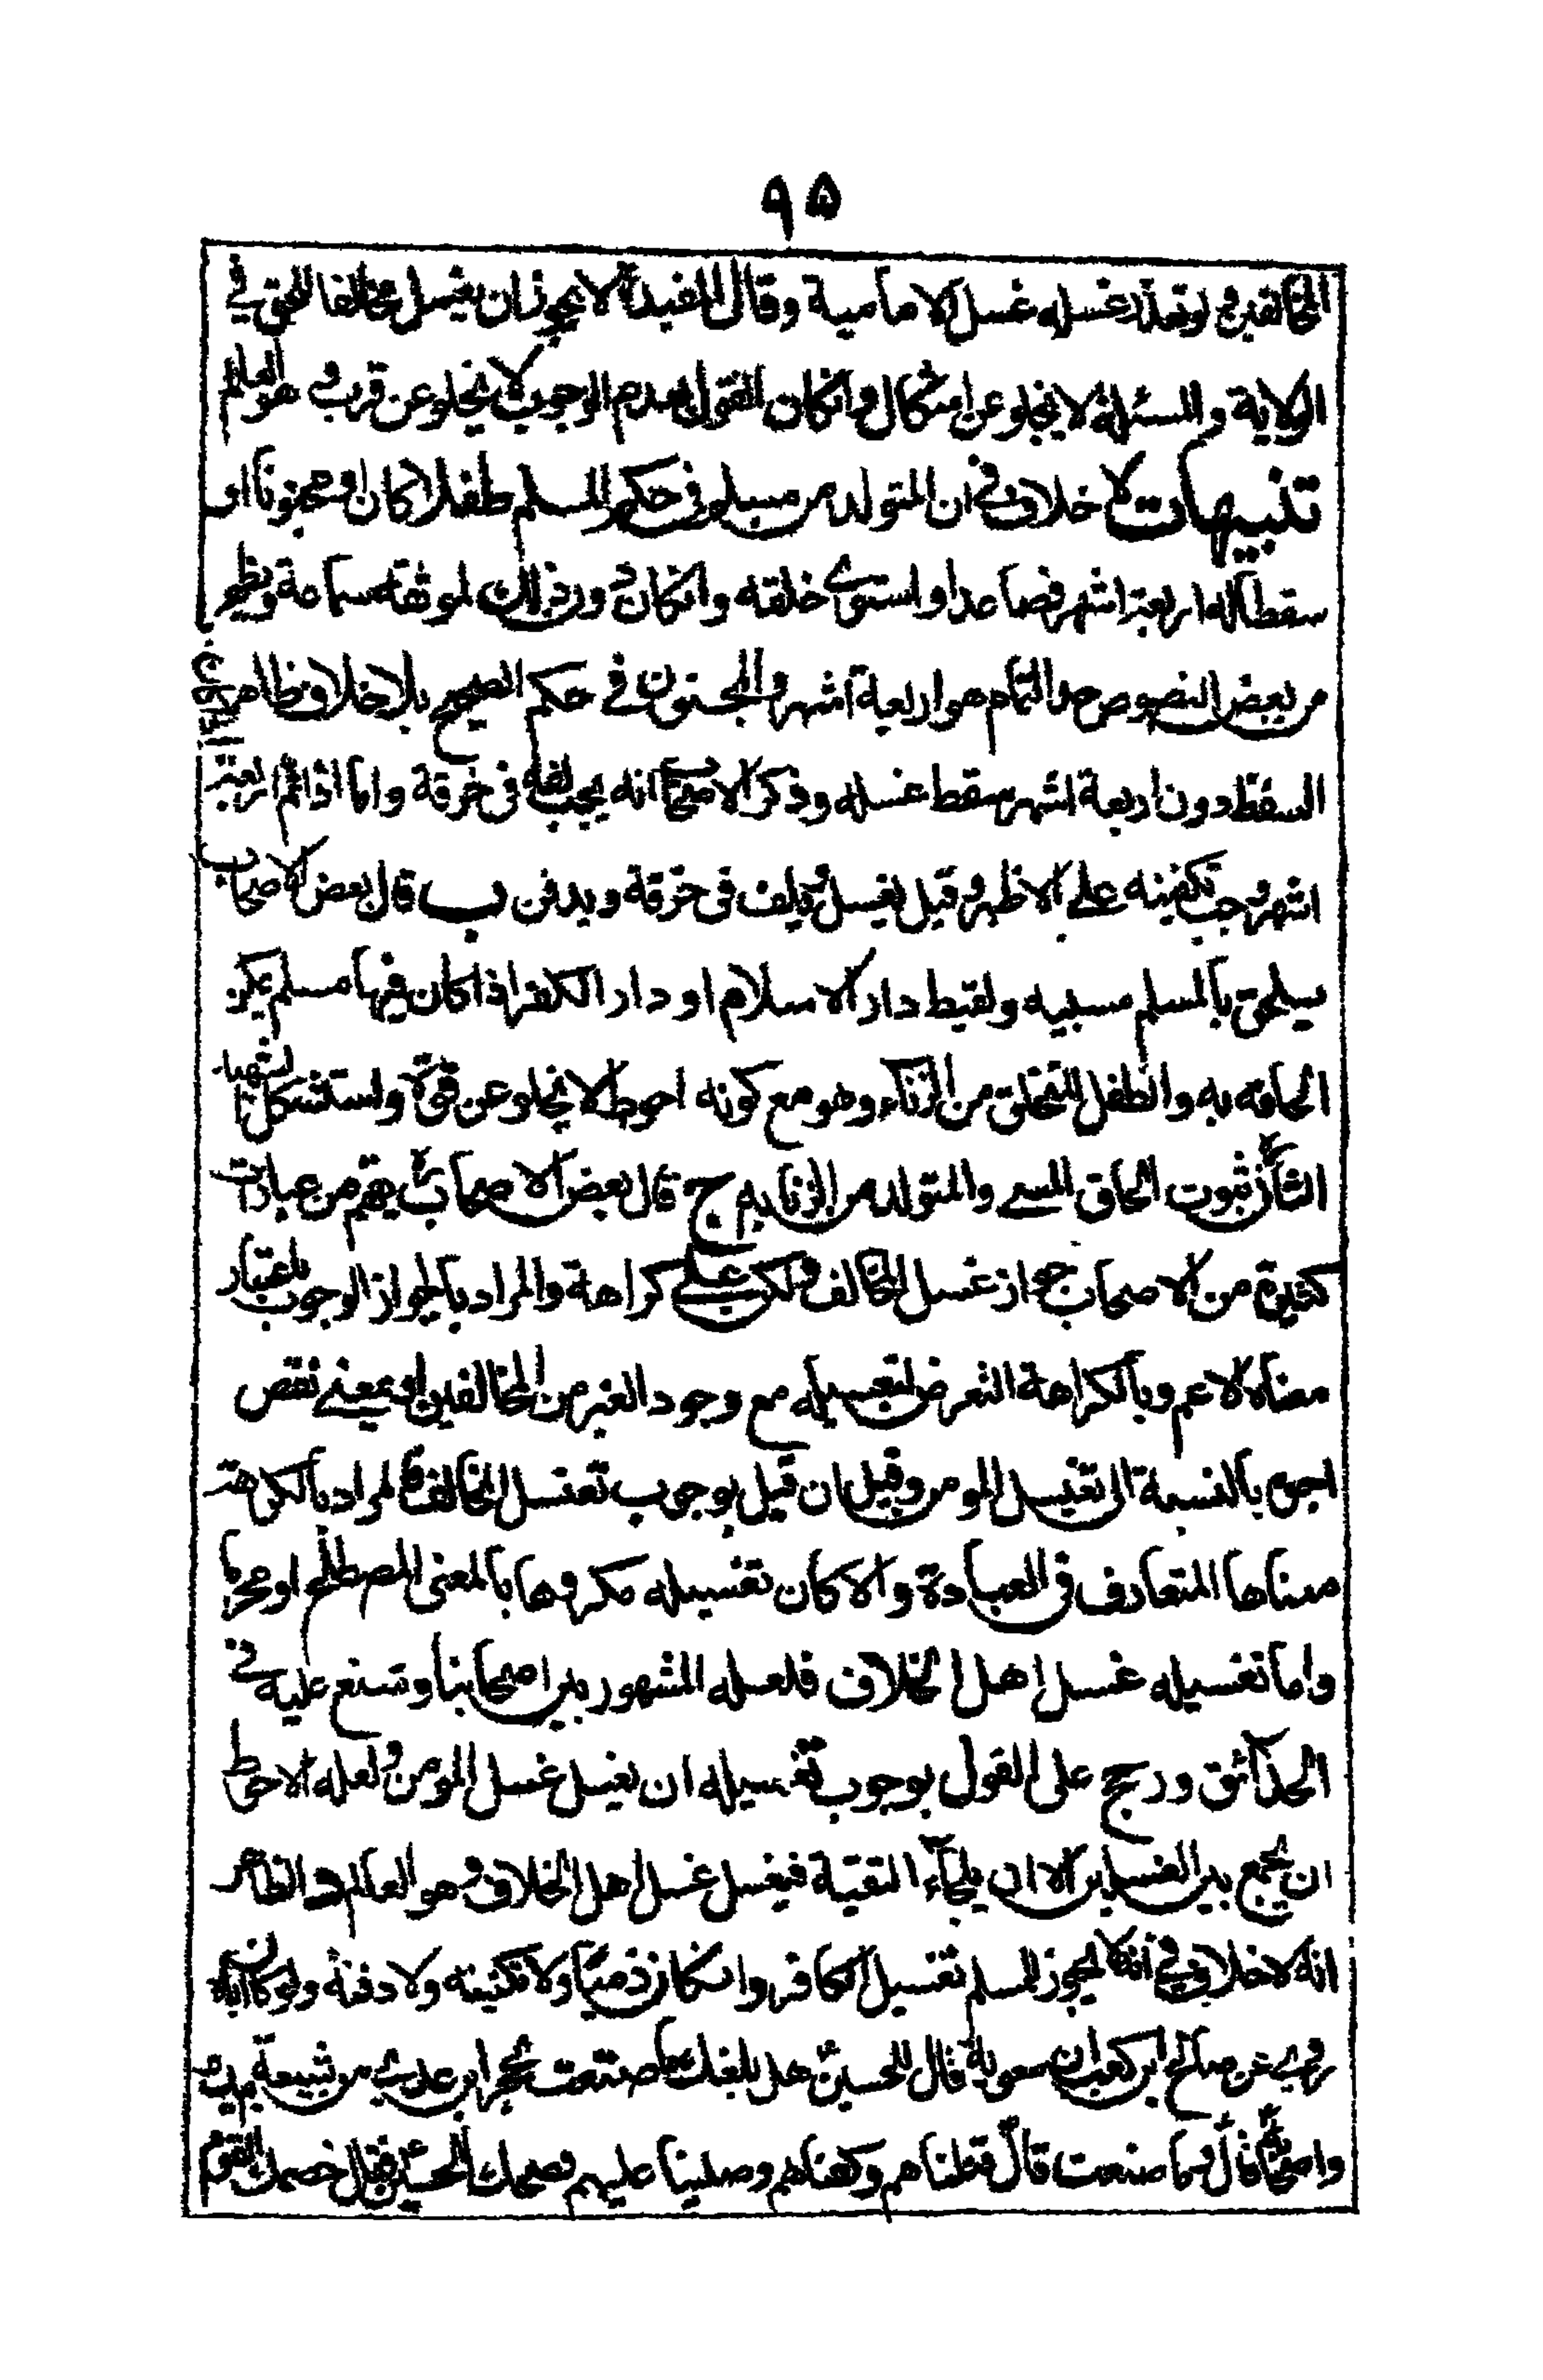 ٩٥
المخالفين ولو تعذر غسله غسل الامامية وقال المفيد لا يجوز ان يغسل مخالفا للحق في
الولاية والمسئلة لا يخلو عن اشكال وانكان القول بعدم الوجوب لا يخلو عن قرب وهو العالم
تنبيهات لا خلاف في ان المتولد من مسلم في حكم المسلم طفلا كان او مجنونا او
سقطا له اربعة اشهر فصاعدا او استوى خلقه وانكان دون ذلك لموثقه سماعة ويظهر
من بعض النصوص حد التمام هو اربعة اشهر والمجنون في حكم الصحيح بلا خلاف ظاهر
السقط دون اربعة اشهر سقط غسله وذكر الاصحاب انه يجب لفه في خرقة واما اذا تم اربعة
اشهر وجب تكفينه على الاظهر وقيل يغسل ويلف في خرقة ويدفن ب قال بعض الاصحاب
يلحق بالمسلم مسبيه ولقيط دار الاسلام او دار الكفر اذا كان فيها مسلم يمكن
الحاقه به والطفل المتخلق من الزناء وهو مع كونه احوط لا يخلو عن قوة واستشكل الشهيد
الثاني ثبوت الحاق المسبي والمتولد من الزنا به ج قال بعض الاصحاب يفهم من عبارات
كثيرة من الاصحاب جواز غسل المخالف ولكن على كراهة والمراد بالجواز الوجوب باعتبار
معناه الاعم وبالكراهة التعرض لتغسيله مع وجود الغير من المخالفين او بمعنى نقص
اجره بالنسبة الى تغسيل المومن وقيل ان قيل بوجوب تغسل المخالف فالمراد بالكراهة
معناها المتعارف في العبادة والا كان تغسيله مكروها بالمعنى المصطلح او محرما
واما تغسيله غسل اهل الخلاف فلعله المشهور بين اصحابنا وشنع عليه في
الحدآئق ورجح على القول بوجوب تغسيله ان يغسل غسل المومن ولعله الاحوط
ان يجمع بين الغسلين الا ان يلجأء التقية فيغسل غسل اهل الخلاف وهو العالم د الظاهر
انه لا خلاف في انه لا يجوز للمسلم تغسيل الكافر وانكان ذميا ولا تكفينه ولا دفنه ولو كان اباه
روى عن صالح ابن كعب ان معوية قال للحسين هل بلغك ما صنعت بحجر ابن عدي من شيعة ابيك
واصحابه قال وما صنعت قال قتلناهم وكفناهم وصلينا عليهم فضحك الحسين فقال خصمك القوم